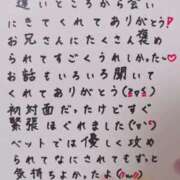 遠いところから会い
にきてくれてありがとう!
お兄さんにたくさん褒め
られてすごくうれしかった♡
お話もいろいろ聞いて
くれてありがとう(
初対面だったけどすぐ
緊張ほぐれました(
ベットでは優しく攻め
られてなにされてもずっと
気持ちよかったよ(